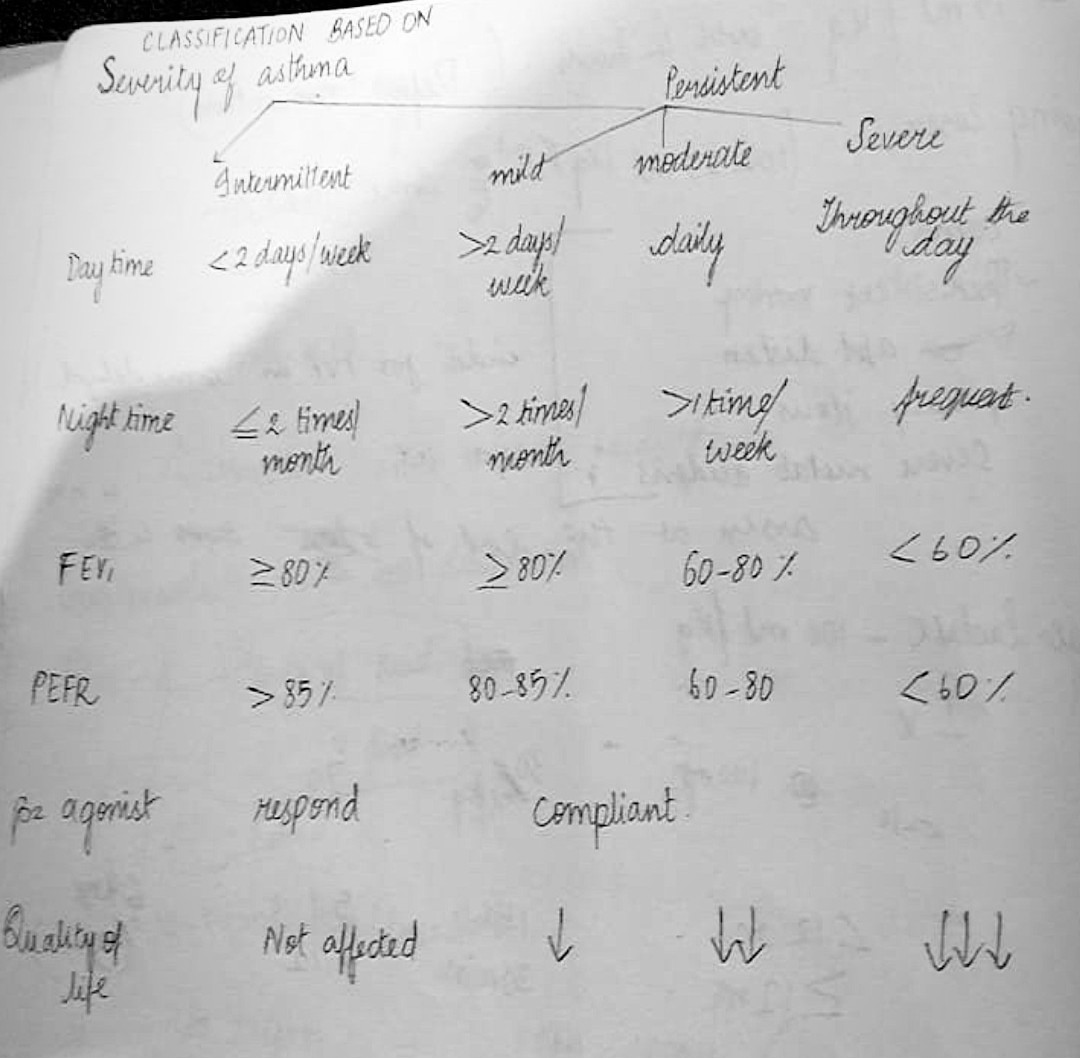 CLASSIFICATION BASED ON
Severity of asthma
Persistent
Intermittent mild moderate Severe
Day time <2 days/week >2 days/ daily Throughout the
week day
Night time ≤2 times/ >2 times/ >1 time/ frequent.
month month week
FEV₁ ≥80% ≥80% 60-80% <60%
PEFR >85% 80-85% 60-80 <60%
β2 agonist respond compliant.
Quality of Not affected ↓ ↓↓ ↓↓↓
life